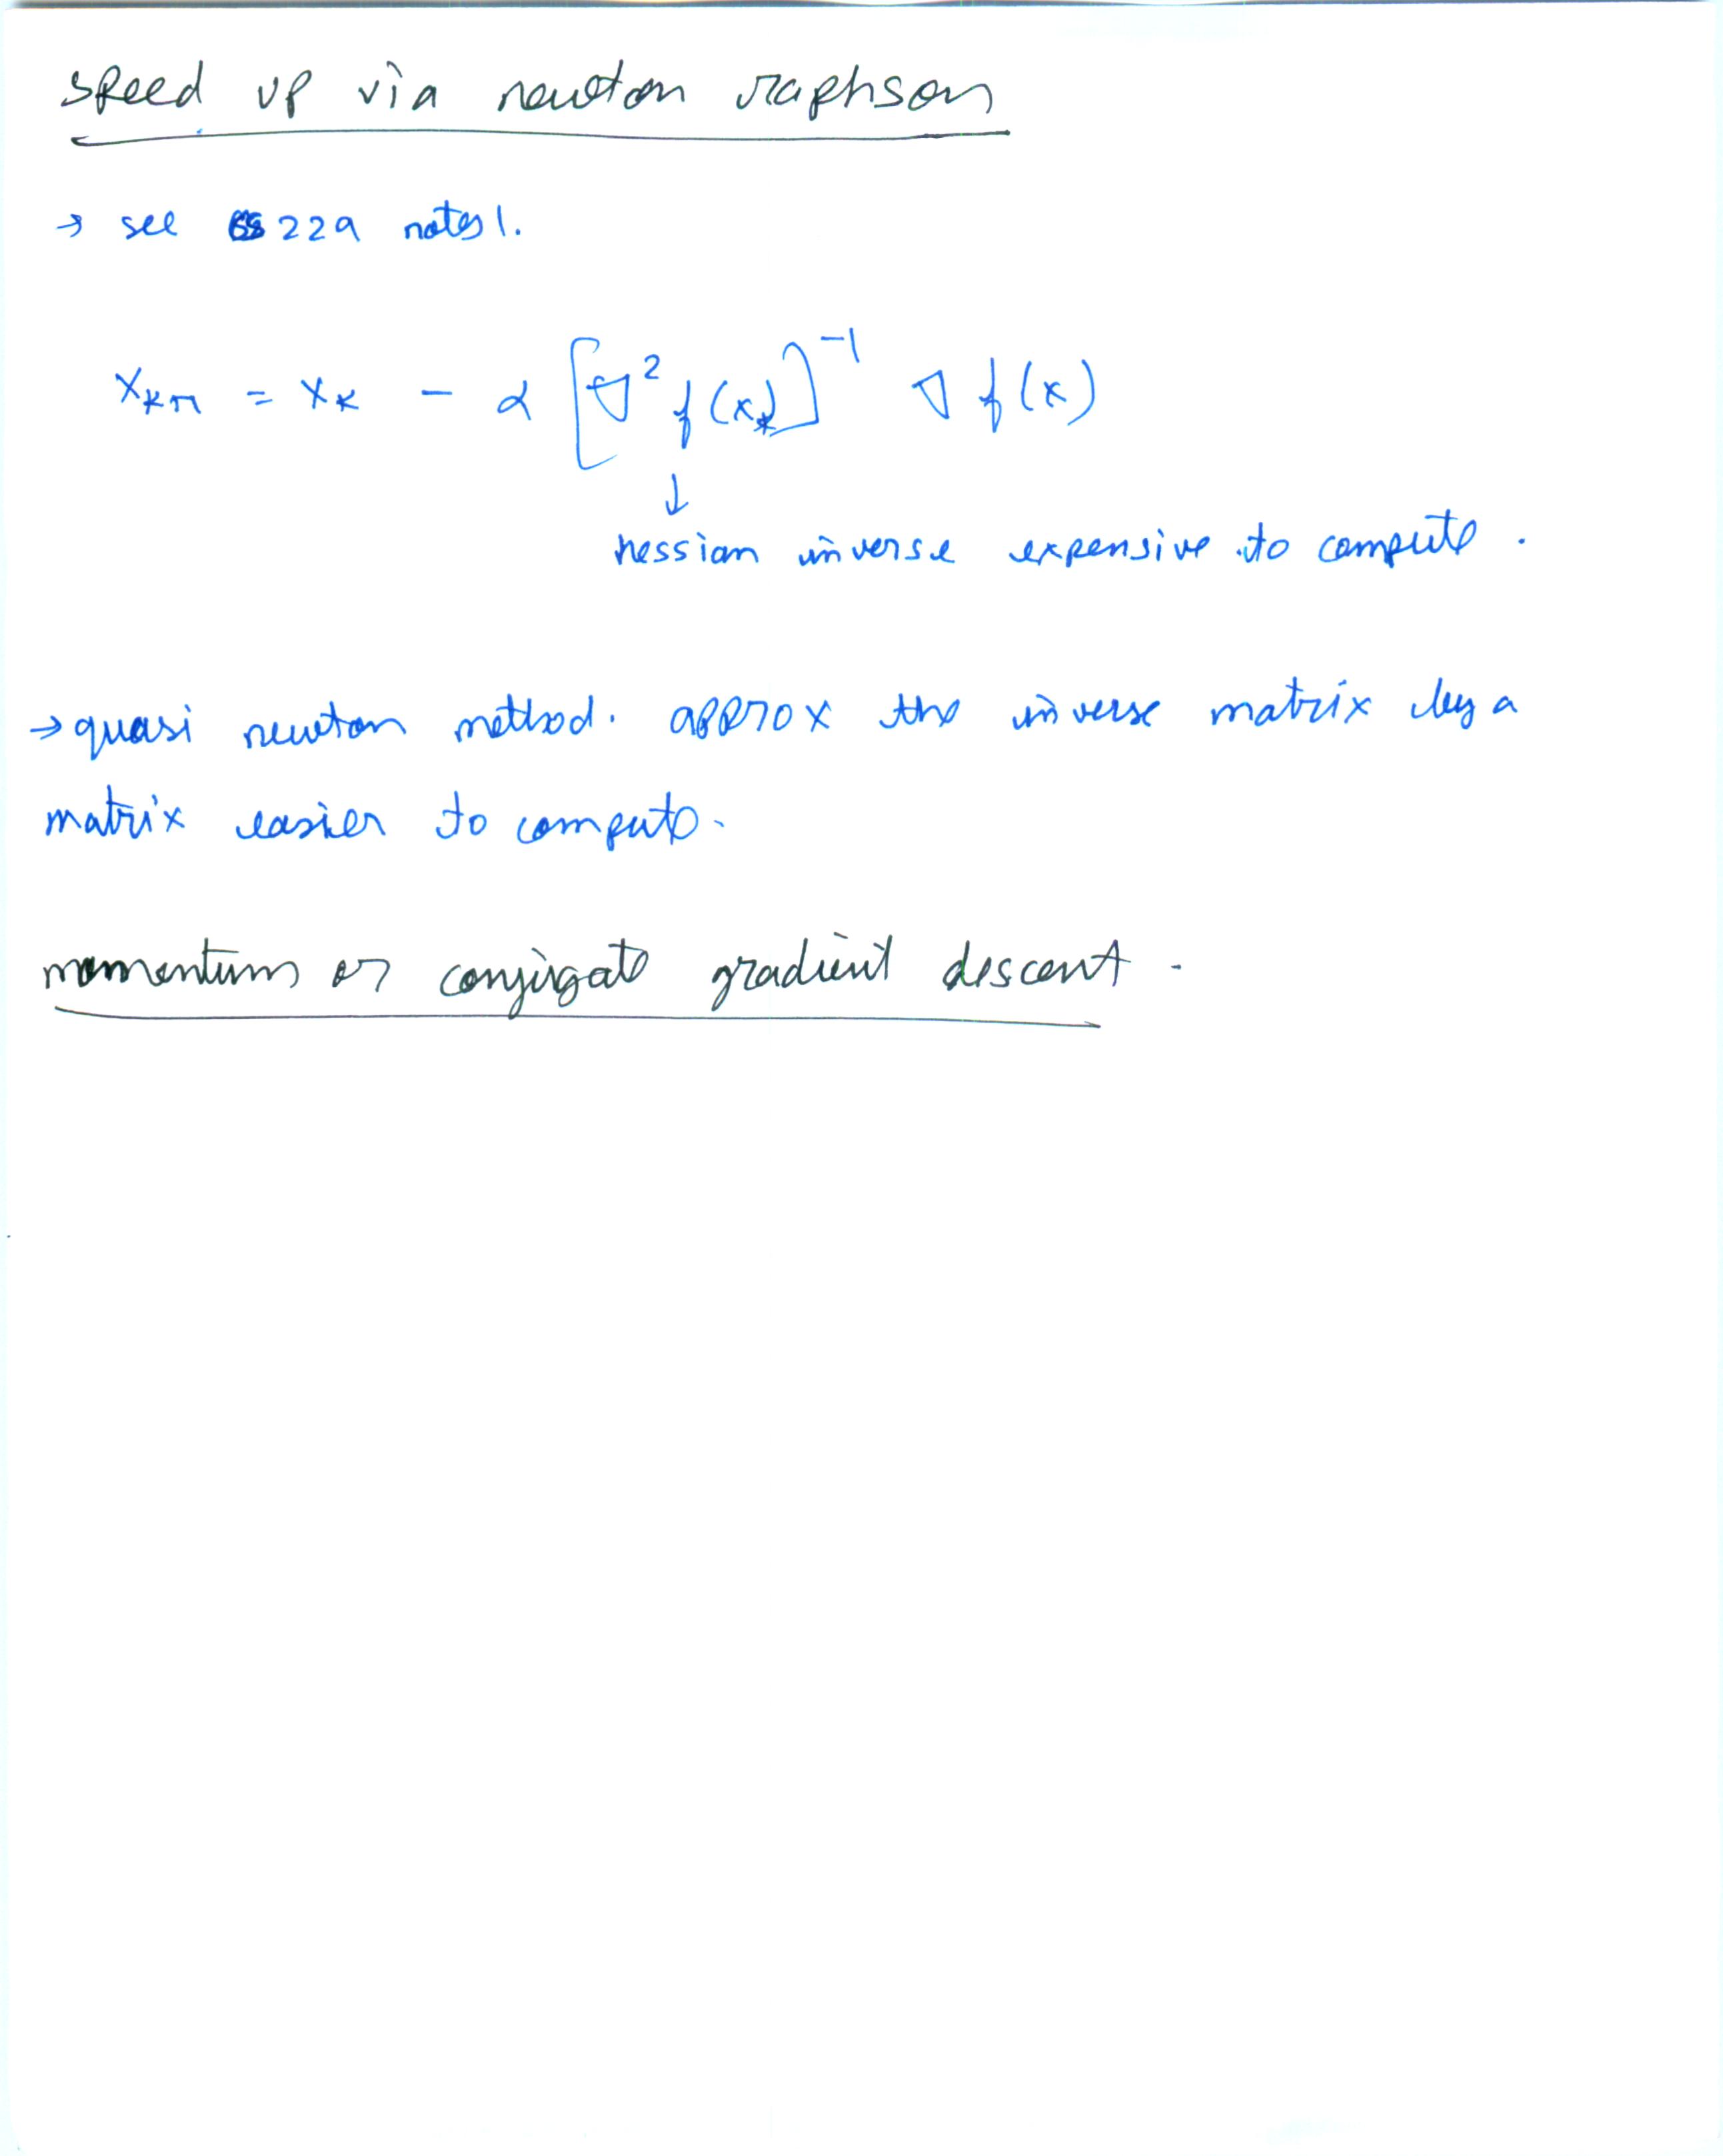 speed up via newton raphson
→ see CS 229 notes 1.
x_{k+1} = x_k - α [∇² f(x_k)]^{-1} ∇ f(x)
↓
hessian inverse expensive to compute.
→ quasi newton method. approx the inverse matrix by a
matrix easier to compute.
momentum or conjugate gradient descent.